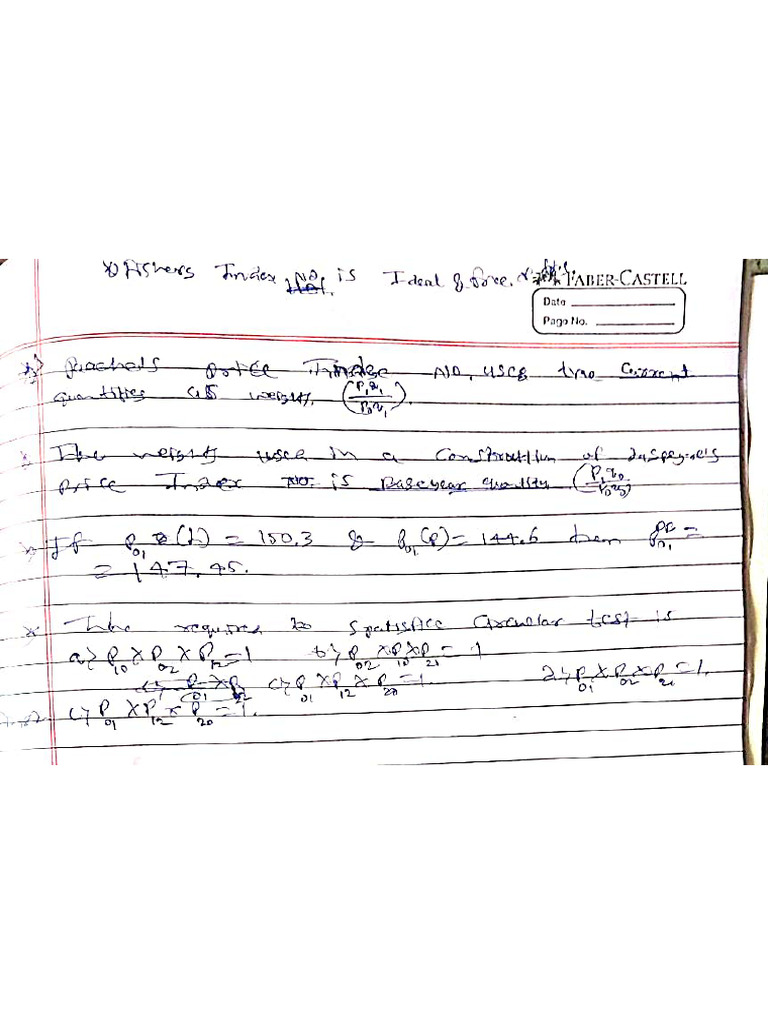 x) Fishers Index No. is Ideal & free.
FABER-CASTELL
Date
Page No.
price Index No. uses the Current
quantities as weight. (P₁q₁/P₀q₁).
The weights used in a Construction of Laspeyre's
price Index No. is Base year quantity. (P₁q₀/P₀q₀)
x) If P₀₁(L) = 150.3 & P₀₁(P) = 144.6 then P₀₁ =
= 147.45.
x The required to Spatistice Circular test is
a) P₁₀ X P₀₂ X P₁₂ = 1 b) P₀₂ X P₁₀ X P₂₁ = 1
c) P₀₁ X P₁₂ X P₂₀ = 1. 2) P₀₁ X P₀₂ X P₂₁ = 1.
c) P₀₁ X P₁₂ x P₂₀ = 1.